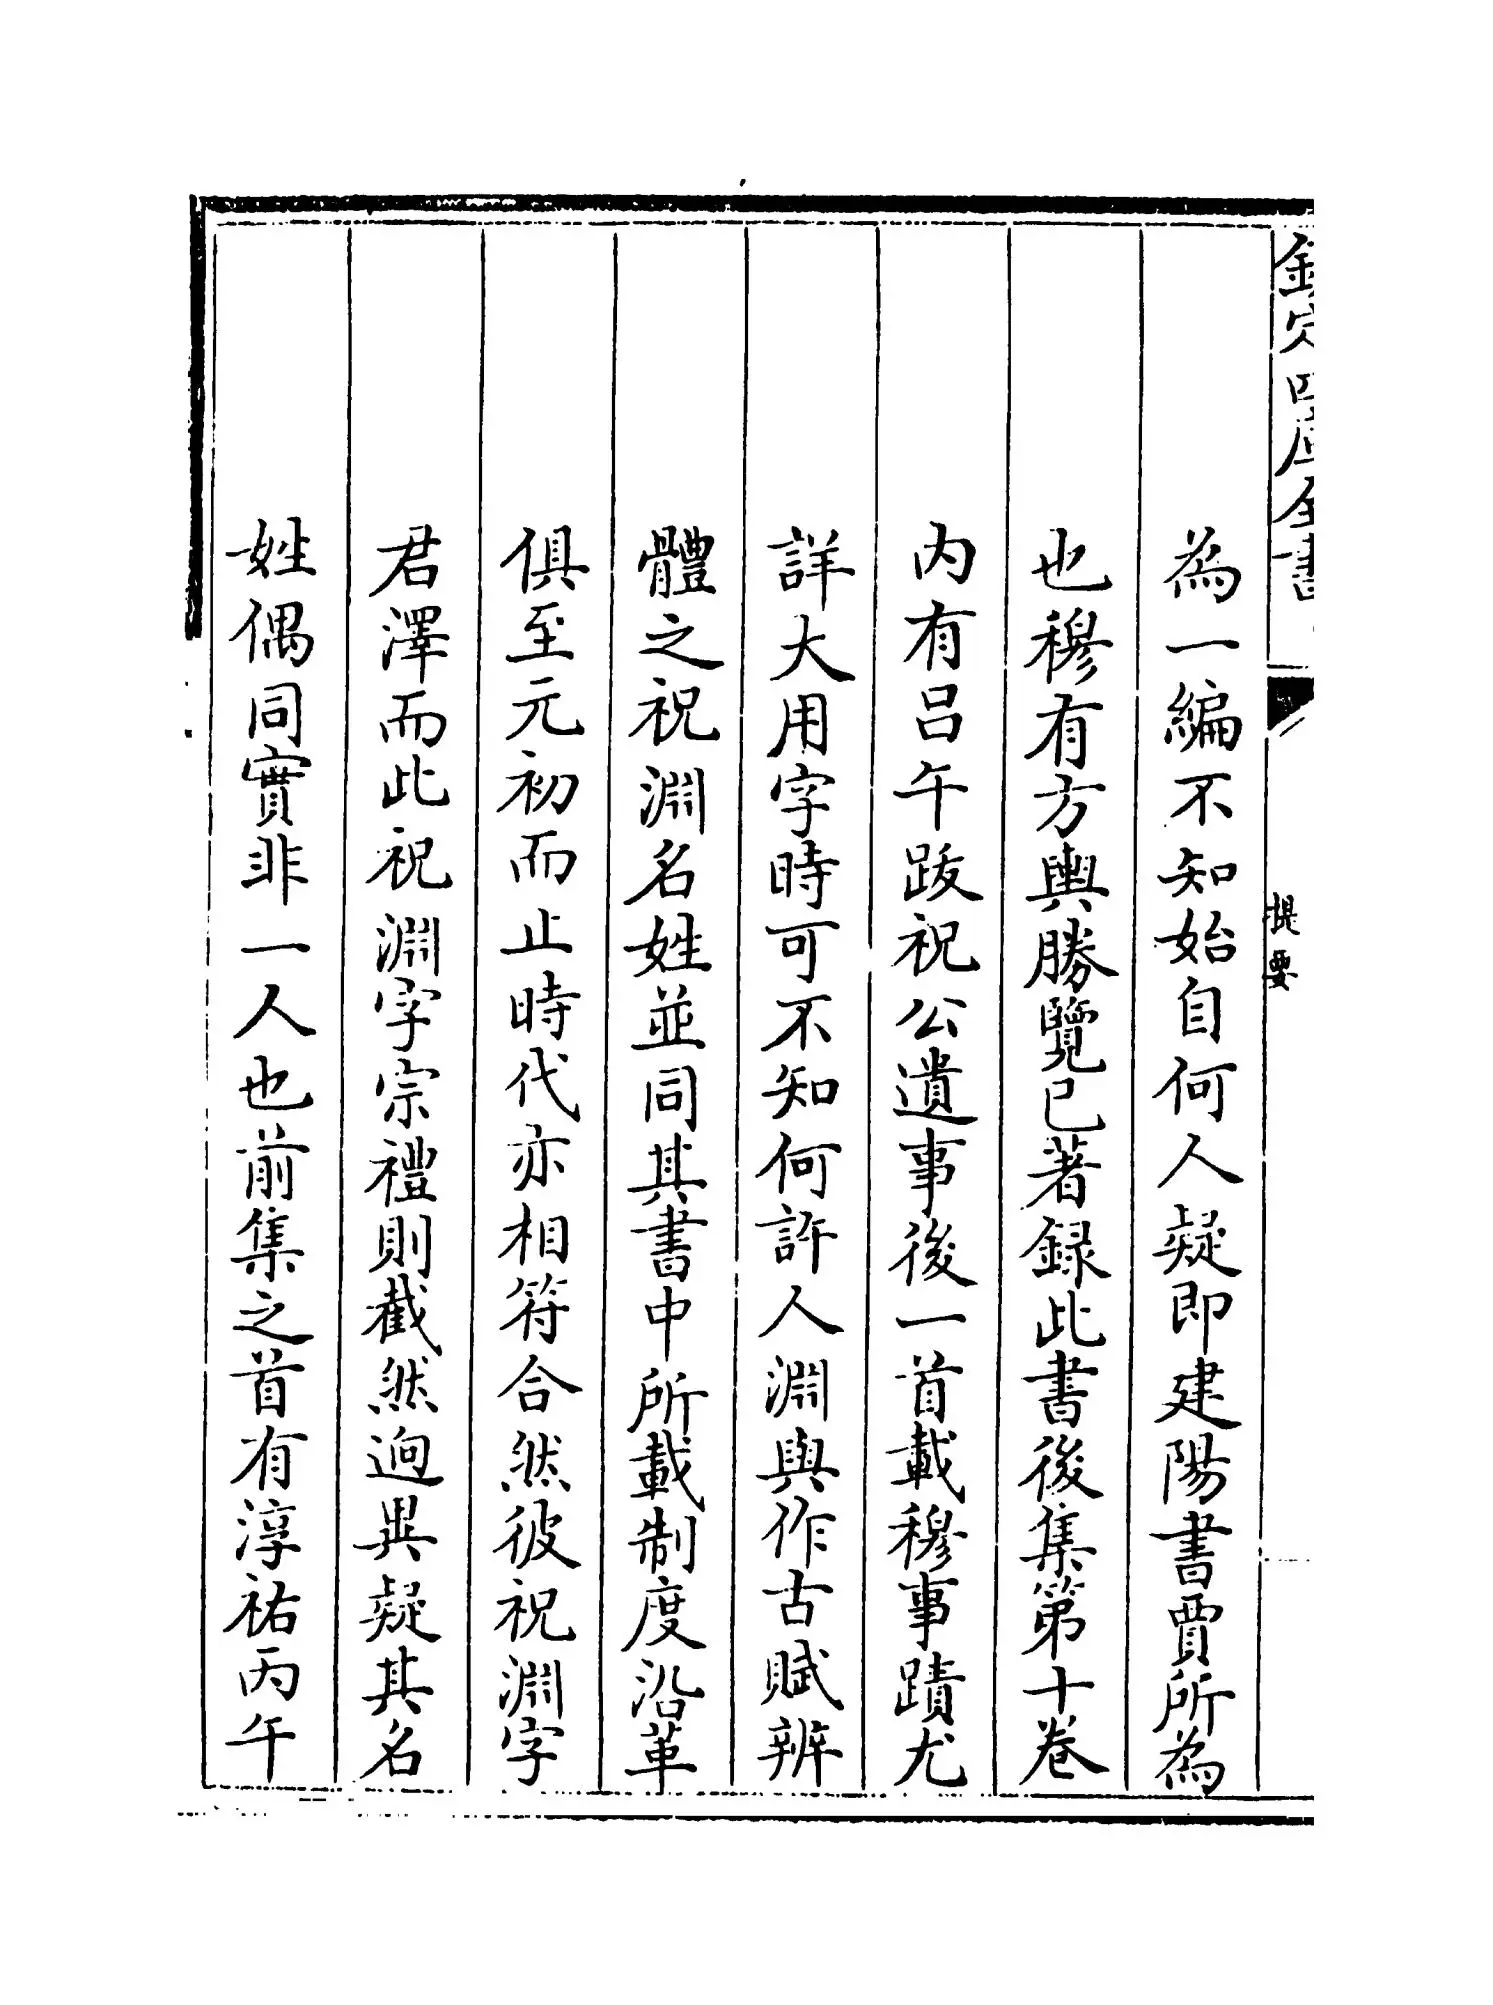 欽定四庫全書
提要
為一編不知始自何人疑即建陽書賈所為
也穆有方輿勝覽已著録此書後集第十卷
内有吕午跋祝公遺事後一首載穆事蹟尤
詳大用字時可不知何許人淵與作古賦辨
體之祝淵名姓並同其書中所載制度沿革
俱至元初而止時代亦相符合然彼祝淵字
君澤而此祝淵字宗禮則截然逈異疑其名
姓偶同實非一人也前集之首有淳祐丙午